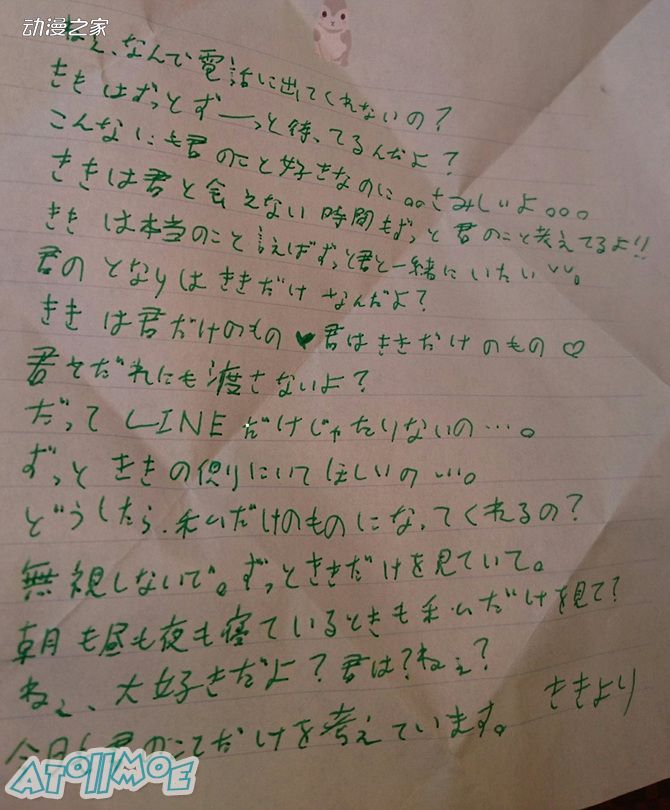 动漫之家
ねえ、なんで電話に出てくれないの?
ききはずっとずーっと待ってるんだよ?
こんなにも君のこと好きなのに。。さみしいよ。。。
ききは君と会えない時間もずっと君のこと考えてるよ!!
ききは本当のこと言えばずっと君と一緒にいたい、、。
君のとなりはききだけなんだよ?
ききは君だけのもの♥君はききだけのもの♡
君をだれにも渡さないよ?
だってLINEだけじゃたりないの…。
ずっとききの側りにいてほしいの…。
どうしたら、私だけのものになってくれるの?
無視しないで。ずっとききだけを見ていて。
朝も昼も夜も寝ているときも私だけを見て?
ねぇ、大好きだよ?君は?ねぇ?
今日も君のことだけを考えています。 ききより
ATOIIMOE